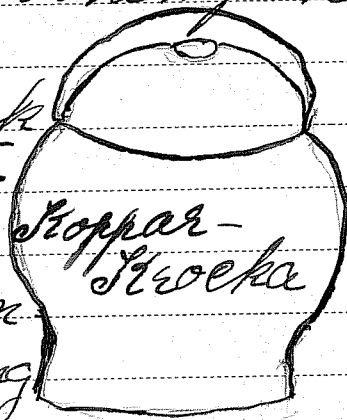 Koppar-
Krocka